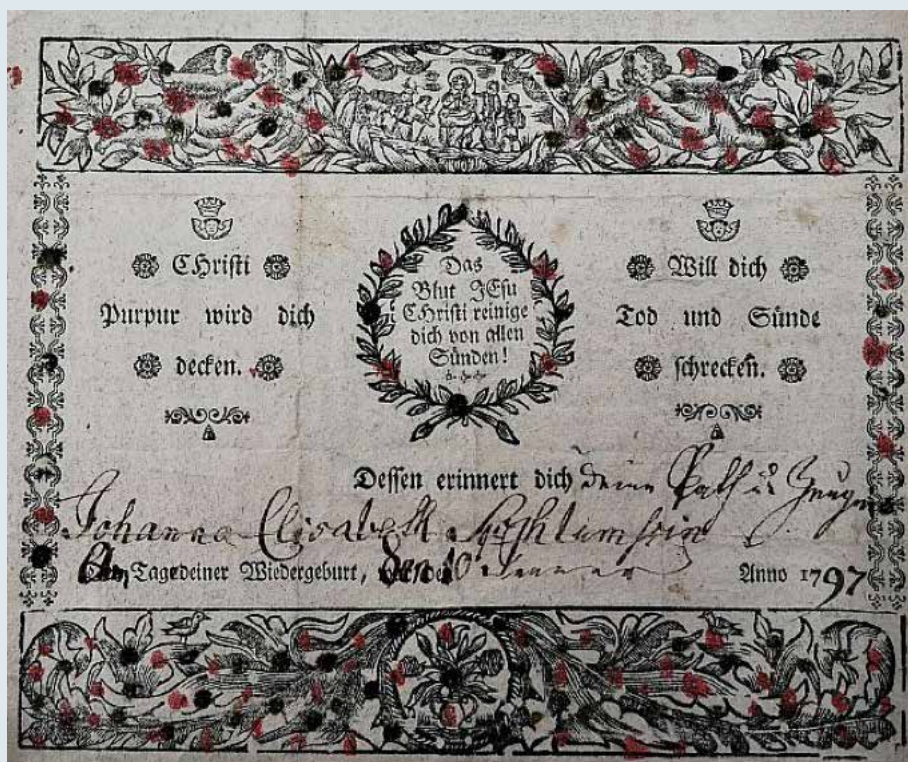 CHristi
Purpur wird dich
decken.
Das
Blut JEsu
CHristi reinige
dich von allen
Sünden!
Will dich
Tod und Sünde
schrecken.
Dessen erinnert dich deine Path u Zeugin
Johanna Elisabeth
Am Tage deiner Wiedergeburt, Anno 1797